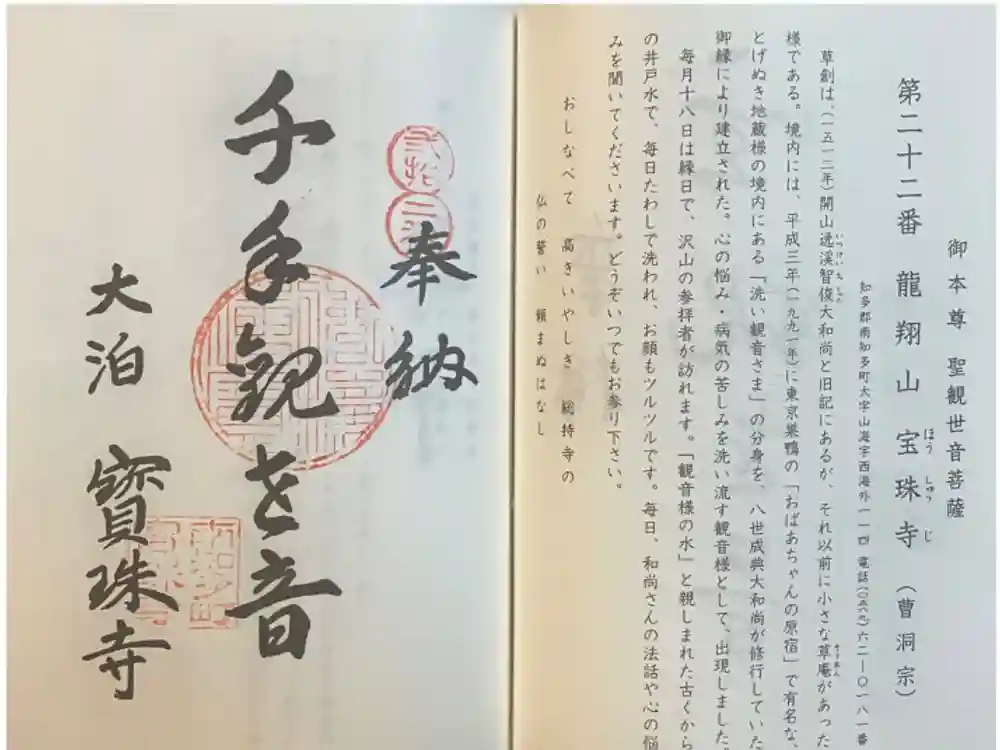 御本尊 聖観世音菩薩
第二十二番 龍翔山 宝珠寺 (曹洞宗)
ほう しゅう じ
知多郡南知多町大字山海字西海外一一四 電話(〇五六九)六二―〇一八一番
草創は、(一五一三年)開山逸渓智俊大和尚と旧記にあるが、それ以前に小さな草庵があった
様である。境内には、平成三年(一九九一年)に東京巣鴨の「おばあちゃんの原宿」で有名な
とげぬき地蔵様の境内にある「洗い観音さま」の分身を、八世成典大和尚が修行していた
御縁により建立された。心の悩み・病気の苦しみを洗い流す観音様として、出現しました。
毎月十八日は縁日で、沢山の参拝者が訪れます。「観音様の水」と親しまれた古くから
の井戸水で、毎日たわしで洗われ、お顔もツルツルです。毎日、和尚さんの法話や心の悩
みを聞いてくださいます。どうぞいつでもお参り下さい。
おしなべて 高きいやしき 総持寺の
仏の誓い 頼まぬはなし
奉納
千手観世音
大泊 寶珠寺